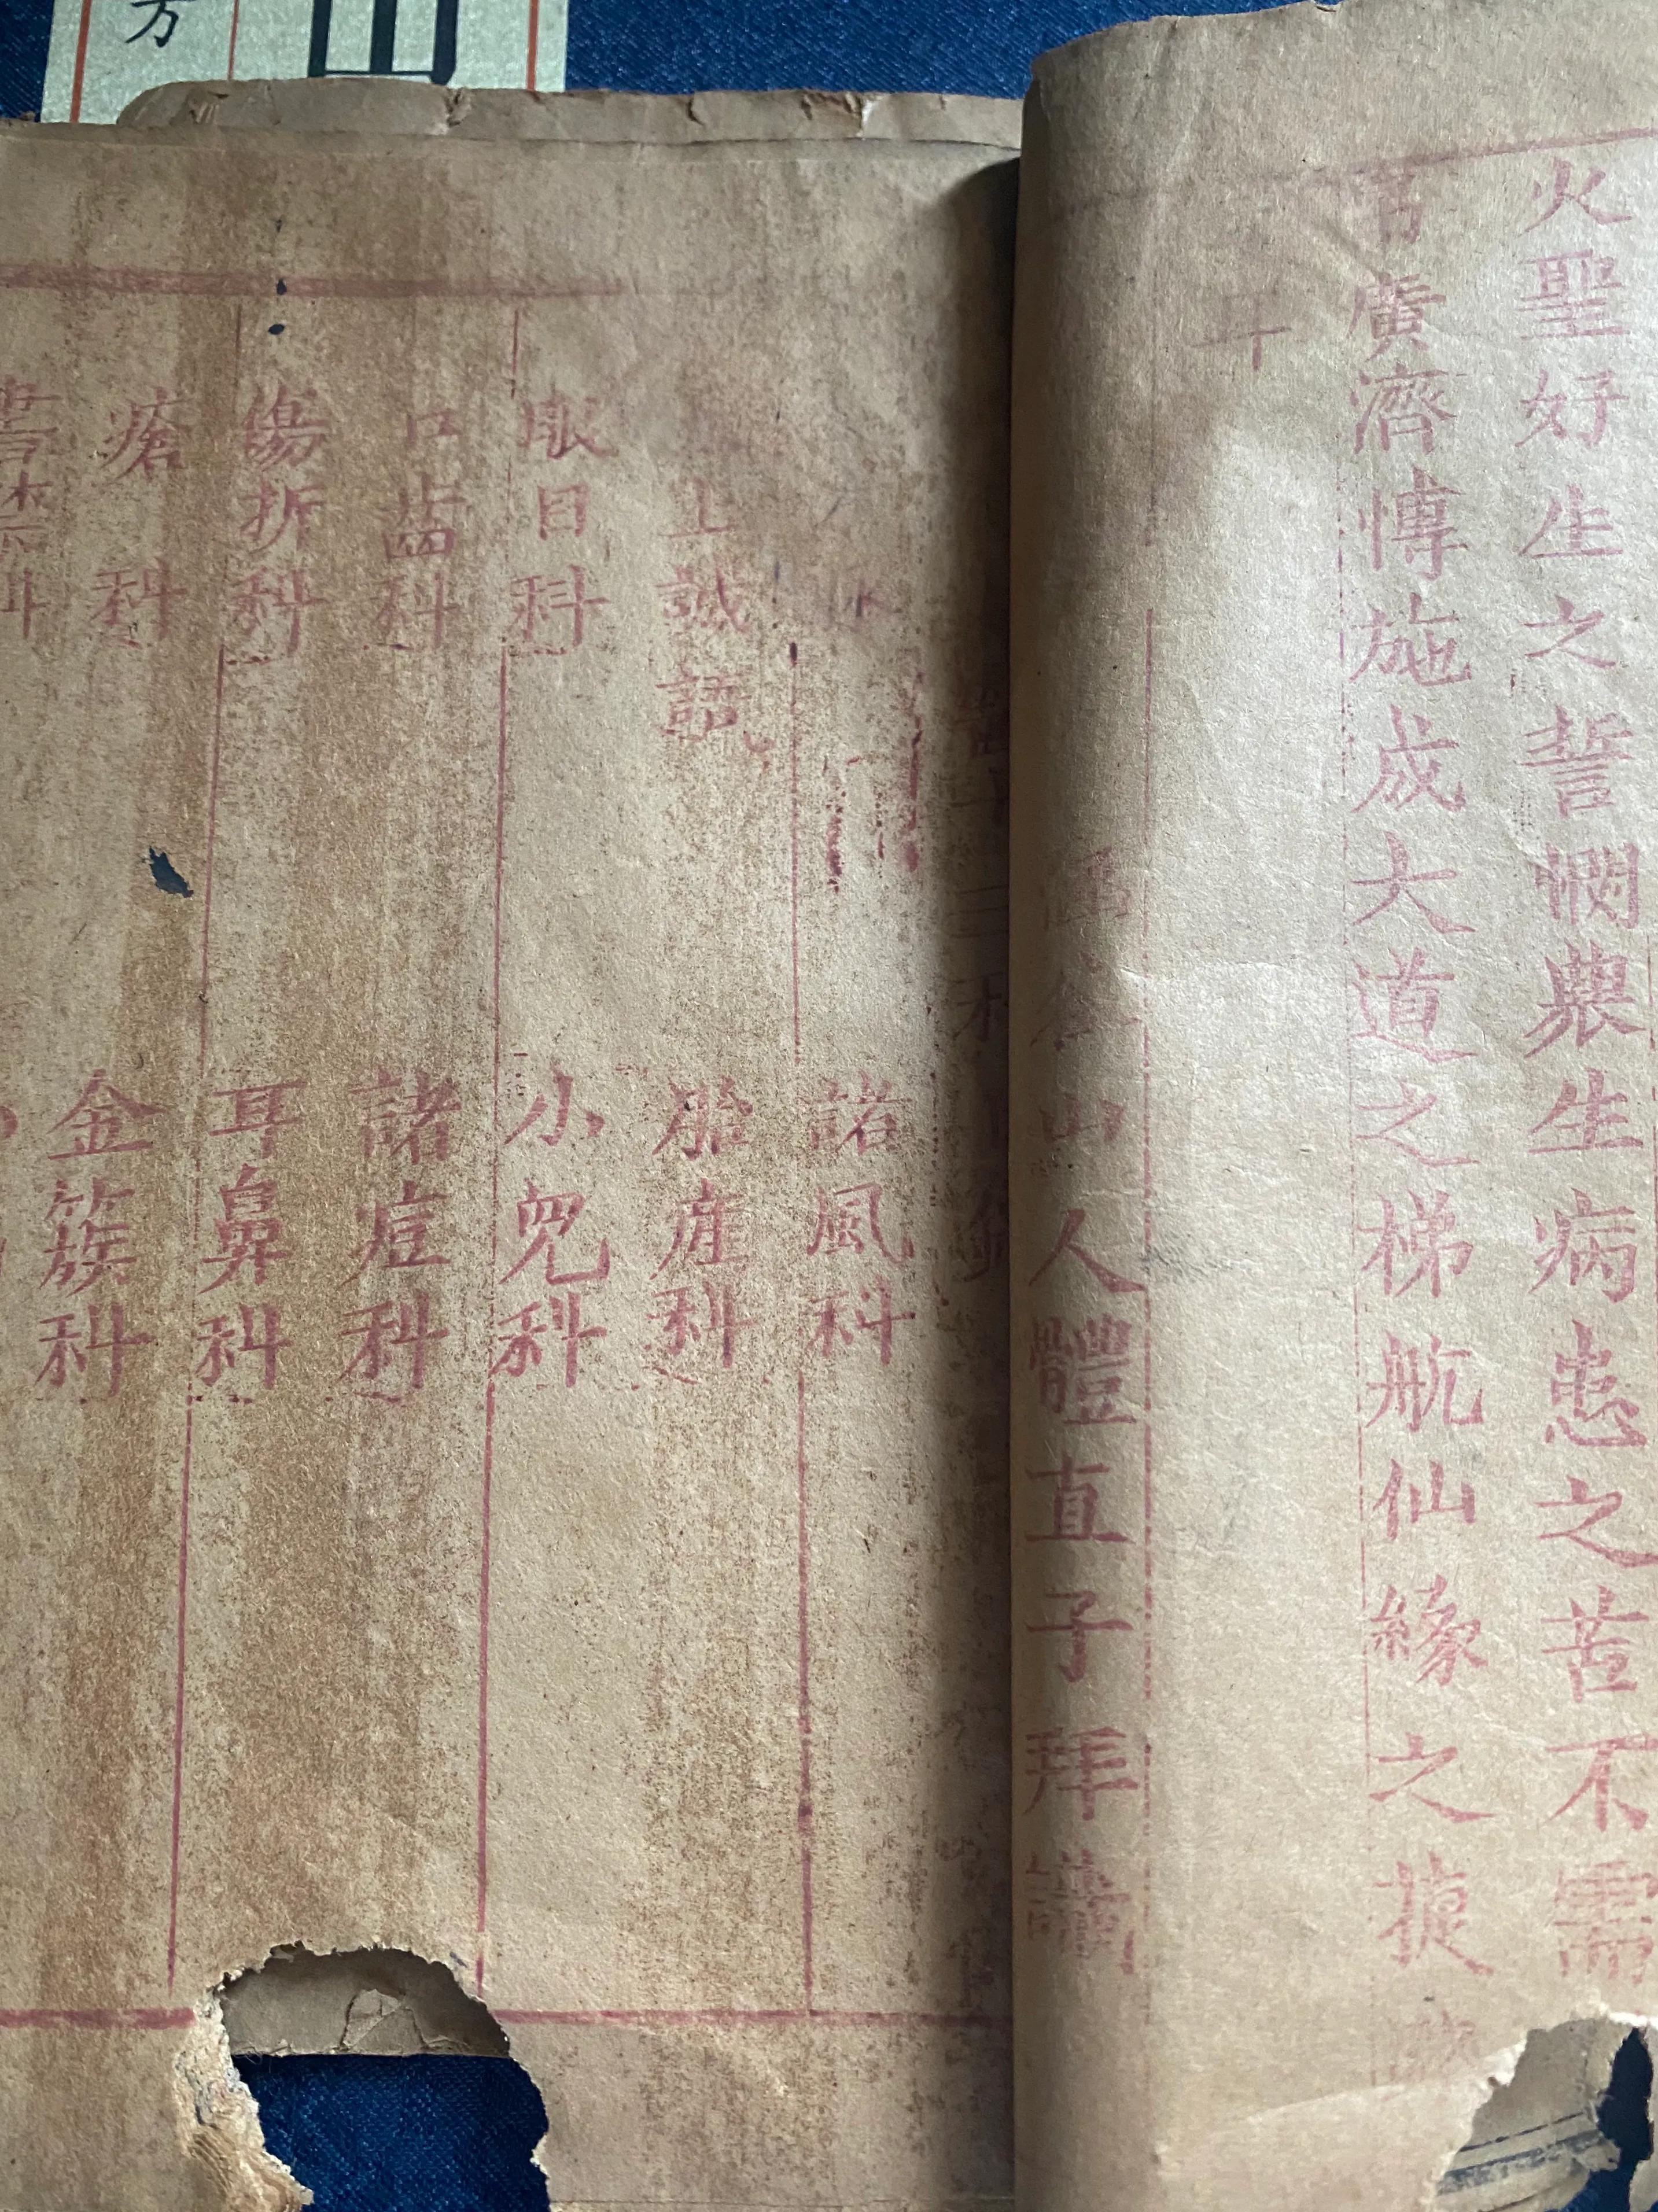 火聖好生之誓憫農生病患之苦不需
廣濟愽施成大道之梯航仙緣之捷
山人體直子拜
諸風科
上誠
胎産科
眼目科
小兒科
口齒科
諸痘科
傷折科
耳鼻科
瘡科
金簇科
書禁科
方